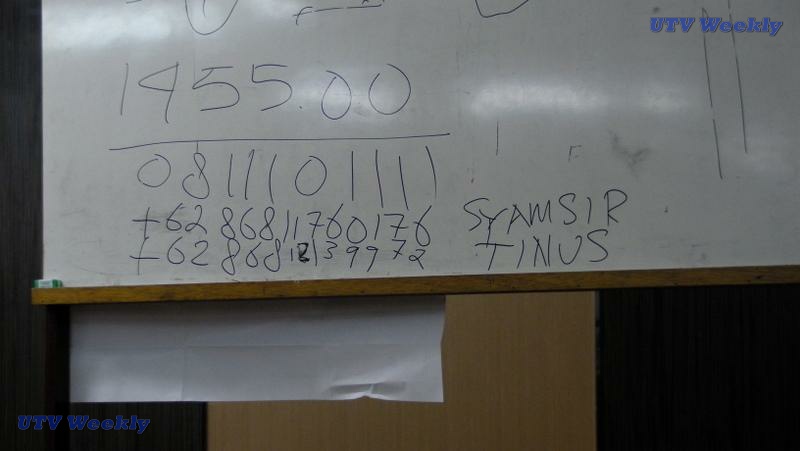 UTV Weekly
1455.00
0811101111
+62 86811760176 SYAMSIR
+62 86812139972 TINUS
UTV Weekly